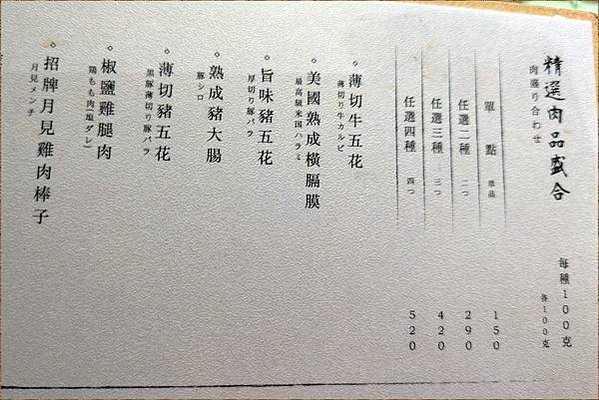 精選肉品盛合
肉盛り合わせ
每種100克
各100克
單點 単品 150
任選二種 二つ 290
任選三種 三つ 420
任選四種 四つ 520
◇薄切牛五花
薄切り牛カルビ
◇美國熟成橫膈膜
最高級米国ハラミ
◇旨味豬五花
厚切り豚バラ
◇熟成豬大腸
豚シロ
◇薄切豬五花
黒豚薄切り豚バラ
◇椒鹽雞腿肉
鶏もも肉(塩ダレ)
◇招牌月見雞肉棒子
月見メンチ